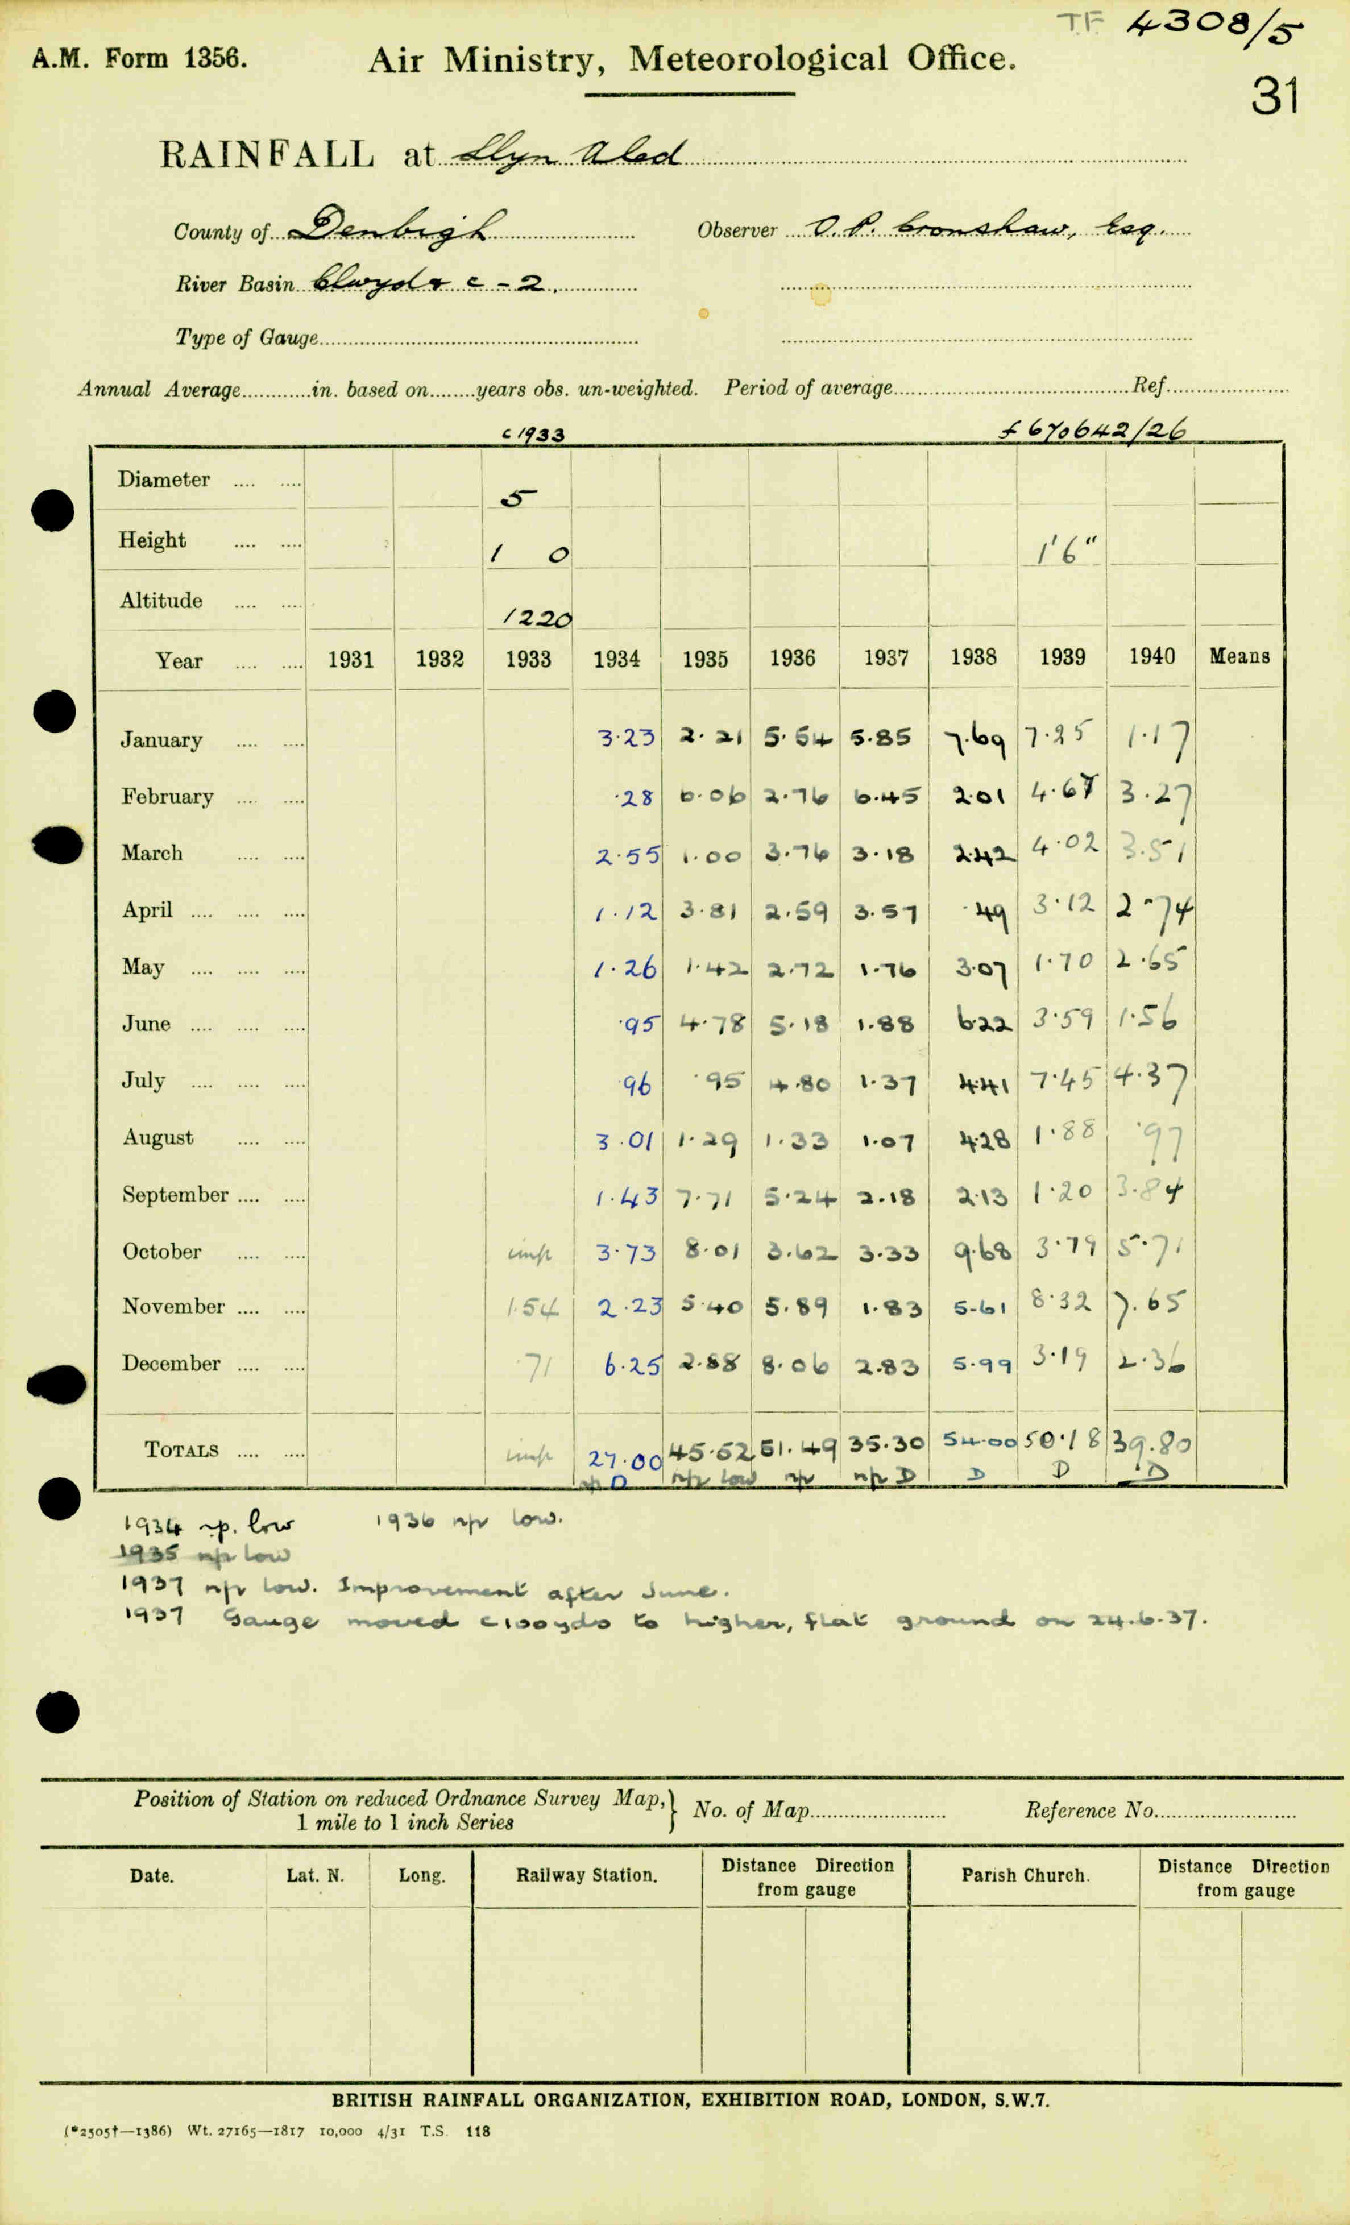 TF 4308/5
A.M. Form 1356. Air Ministry, Meteorological Office.
31
RAINFALL at Llyn Aled
County of Denbigh Observer O. P. Cronshaw, Esq.
River Basin Clwyd & c - 2.
Type of Gauge
Annual Average in. based on years obs. un-weighted. Period of average Ref.
c 1933 £670642/26
Diameter 5
Height 1 0 1'6"
Altitude 1220
Year 1931 1932 1933 1934 1935 1936 1937 1938 1939 1940 Means
January 3.23 2.21 5.54 5.85 7.69 7.25 1.17
February .28 6.06 2.76 6.45 2.01 4.67 3.27
March 2.55 1.00 3.76 3.18 2.42 4.02 3.51
April 1.12 3.81 2.59 3.57 .49 3.12 2.74
May 1.26 1.42 2.72 1.76 3.07 1.70 2.65
June .95 4.78 5.18 1.88 6.22 3.59 1.56
July .96 .95 4.80 1.37 4.41 7.45 4.37
August 3.01 1.29 1.33 1.07 4.28 1.88 .97
September 1.43 7.71 5.24 2.18 2.13 1.20 3.84
October imp 3.73 8.01 3.62 3.33 9.68 3.79 5.71
November 1.54 2.23 5.40 5.89 1.83 5.61 8.32 7.65
December .71 6.25 2.88 8.06 2.83 5.99 3.19 2.36
TOTALS imp 27.00 45.52 51.49 35.30 54.00 50.18 39.80
np D np low np np D D D D
1934 np. low 1936 np low.
1935 np low
1937 np low. Improvement after June.
1937 Gauge moved c100yds to higher, flat ground on 24.6.37.
Position of Station on reduced Ordnance Survey Map, 1 mile to 1 inch Series } No. of Map Reference No.
Date. Lat. N. Long. Railway Station. Distance Direction from gauge Parish Church. Distance Direction from gauge
BRITISH RAINFALL ORGANIZATION, EXHIBITION ROAD, LONDON, S.W.7.
(*2505†—1386) Wt. 27165—1817 10,000 4/31 T.S. 118